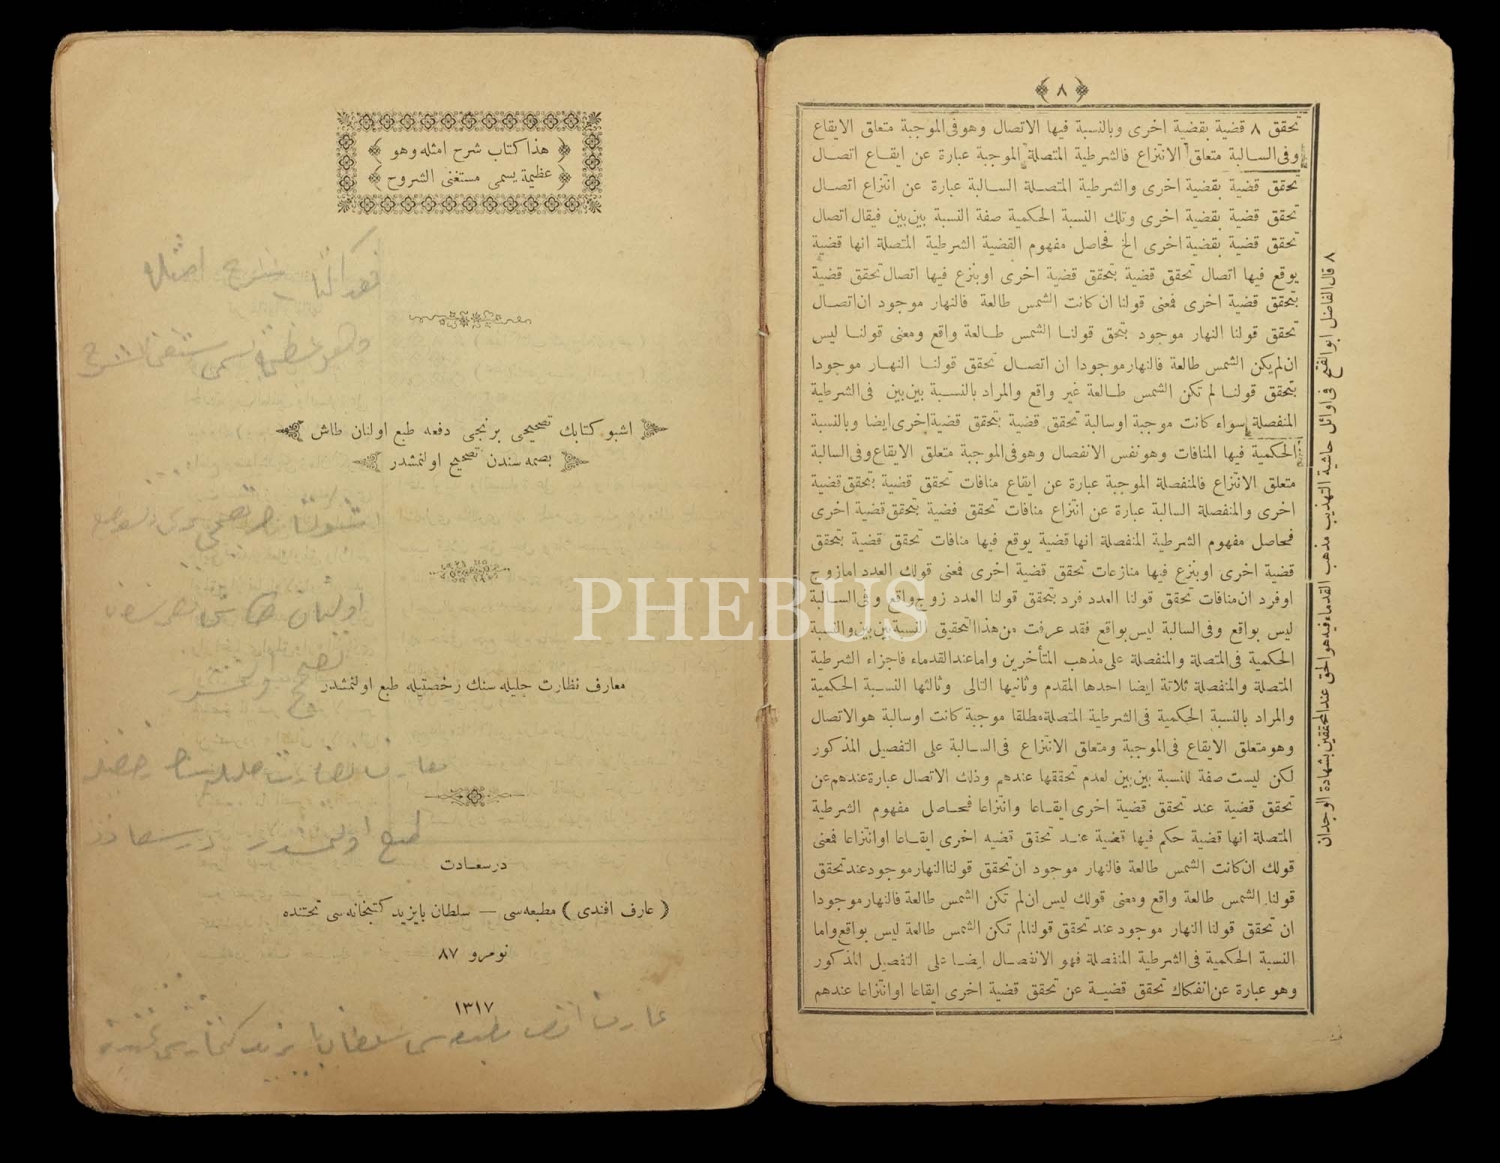 هذا كتاب شرح امثله وهو
عظيمة يسمى مستغنى الشروح
اشبو كتابك تصحيحى برنجى دفعه طبع اولنان طاش
بصمه سندن تصحيح اولنمشدر
معارف نظارت جليله سنك رخصتيله طبع اولنمشدر
درسعادت
( عارف افندى ) مطبعه سى — سلطان بايزيد كتبخانه سى تحتنده
نومرو ٨٧
١٣١٧
٨
تحقق ٨ قضية بقضية اخرى وبالنسبة فيها الاتصال وهو فى الموجبة متعلق الايقاع
وفى السالبة متعلق الانتزاع فالشرطية المتصلة الموجبة عبارة عن ايقاع اتصال
تحقق قضية بقضية اخرى والشرطية المتصلة السالبة عبارة عن انتزاع اتصال
تحقق قضية بقضية اخرى وتلك النسبة الحكمية صفة النسبة بين بين فيقال اتصال
تحقق قضية بقضية اخرى الخ فحاصل مفهوم القضية الشرطية المتصلة انها قضية
يوقع فيها اتصال تحقق قضية بتحقق قضية اخرى او ينزع فيها اتصال تحقق قضية
بتحقق قضية اخرى فمعنى قولنا ان كانت الشمس طالعة فالنهار موجود ان اتصال
تحقق قولنا النهار موجود بتحق قولنا الشمس طالعة واقع ومعنى قولنا ليس
ان لم يكن الشمس طالعة فالنهار موجودا ان اتصال تحقق قولنا النهار موجودا
بتحقق قولنا لم تكن الشمس طالعة غير واقع والمراد بالنسبة بين بين فى الشرطية
المنفصلة سواء كانت موجبة او سالبة تحقق قضية بتحقق قضية اخرى ايضا وبالنسبة
الحكمية فيها المنافات وهو نفس الانفصال وهو فى الموجبة متعلق الايقاع وفى السالبة
متعلق الانتزاع فالمنفصلة الموجبة عبارة عن ايقاع منافات تحقق قضية بتحقق قضية
اخرى والمنفصلة السالبة عبارة عن انتزاع منافات تحقق قضية بتحقق قضية اخرى
فحاصل مفهوم الشرطية المنفصلة انها قضية يوقع فيها منافات تحقق قضية بتحقق
قضية اخرى او ينزع فيها منازعات تحقق قضية اخرى فمعنى قولك العدد اما زوج
او فرد ان منافات تحقق قولنا العدد فرد بتحقق قولنا العدد زوج واقع وفى السالبة
ليس بواقع وفى السالبة ليس بواقع فقد عرفت من هذا التحقيق النسبة بين بين والنسبة
الحكمية فى المتصلة والمنفصلة على مذهب المتأخرين واما عند القدماء فاجزاء الشرطية
المتصلة والمنفصلة ثلاثة ايضا احدها المقدم وثانيها التالى وثالثها النسبة الحكمية
والمراد بالنسبة الحكمية فى الشرطية المتصلة مطلقا موجبة كانت او سالبة هو الاتصال
وهو متعلق الايقاع فى الموجبة ومتعلق الانتزاع فى السالبة على التفصيل المذكور
لكن ليست صفة للنسبة بين بين لعدم تحققها عندهم وذلك الاتصال عبارة عندهم عن
تحقق قضية عند تحقق قضية اخرى ايقاعا وانتزاعا فحاصل مفهوم الشرطية
المتصلة انها قضية حكم فيها قضية عند تحقق قضيه اخرى ايقاعا او انتزاعا فمعنى
قولك ان كانت الشمس طالعة فالنهار موجود ان تحقق قولنا النهار موجود عند تحقق
قولنا الشمس طالعة واقع ومعنى قولك ليس ان لم تكن الشمس طالعة فالنهار موجودا
ان تحقق قولنا النهار موجود عند تحقق قولنا لم تكن الشمس طالعة ليس بواقع واما
النسبة الحكمية فى الشرطية المنفصلة فهو الانفصال ايضا على التفصيل المذكور
وهو عبارة عن انفكاك تحقق قضية عن تحقق قضية اخرى ايقاعا او انتزاعا عندهم
٨ قال الفاضل ابو الفتح فى اوائل حاشية التهذيب مذهب القدماء فيه هو الحق عند المحققين بشهادة الوجدان
PHEBUS